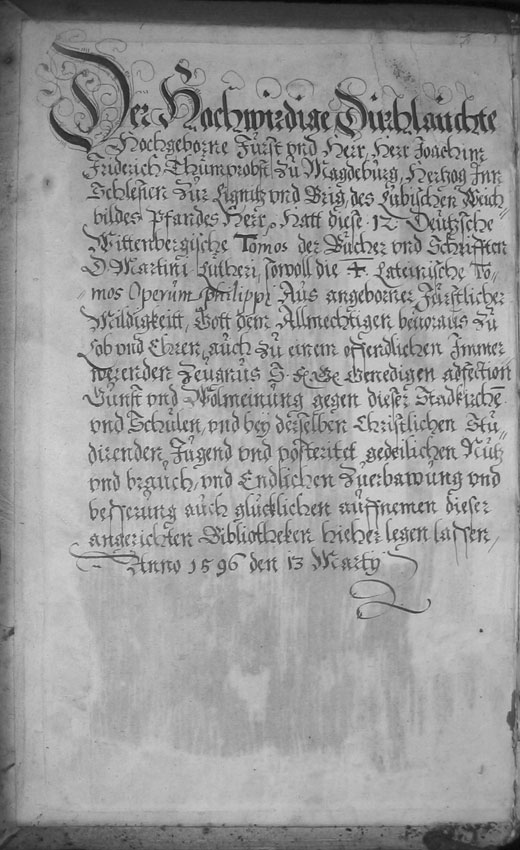 Der Hochwirdige Durhläuchte
Hochgeborne Fürst vnd Herr, Herr Joachim
Friderich Thumprobst Zu Magdeburg, Hertzog Inn
Schlesien Zur Lignitz vnd Brig, des Lubischen Weich-
bildes Pfandes Herr, Hatt diese 12 Deutzsche
Wittenbergische Tomos der Bücher vnd Schrifften
D. Martini Lutheri, sowoll die 4. Lateinische To-
mos Operum Philippi Aus angeborner Fürstlicher
Mildigkeitt, Gott dem Allmechtigen beuoraus Zu
Lob vnd Ehren, auch Zu einem offendlichen Immer-
werenden Zeugnus S. F. G. Genedigen adfection
Gunst vnd Wolmeinung gegen dieser Stadkirchen
vnd Schulen, vnd bey derselben Christlichen Stu-
direnden Jugend vnd posteritet gedeilichen Nutz
vnd brauch, vnd Endlichen Zuerbawung vnd
besserung auch glücklichen auffnemen dieser
angerichten Bibliotheken hieher legen lassen,
Anno 1596 den 13 Marty